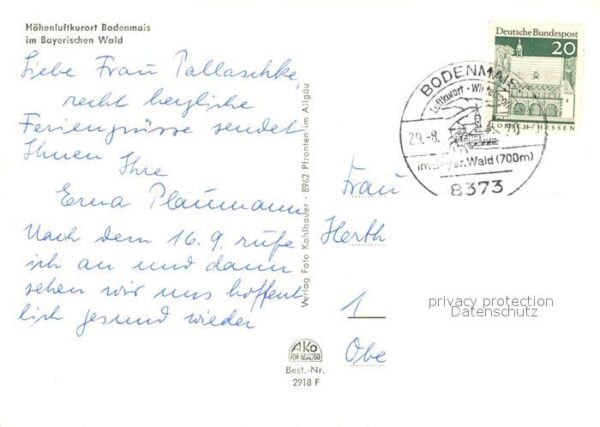 Höhenluftkurort Bodenmais
im Bayerischen Wald
Liebe Frau Pallaschke,
recht herzliche
Feriengrüsse sendet
Ihnen Ihre
Erna Plaumann
Nach dem 16.9. rufe
ich an und dann
sehen wir uns hoffent
lich gesund wieder
Verlag Foto Kohlbauer · 8962 Pfronten im Allgäu
AKO
Best.-Nr.
2918 F
Deutsche Bundespost
20
LORSCH/HESSEN
BODENMAIS
Luftkurort
29.-8.
im Bayer. Wald (700m)
8373
Frau
Herth
1
Obe
privacy protection
Datenschutz